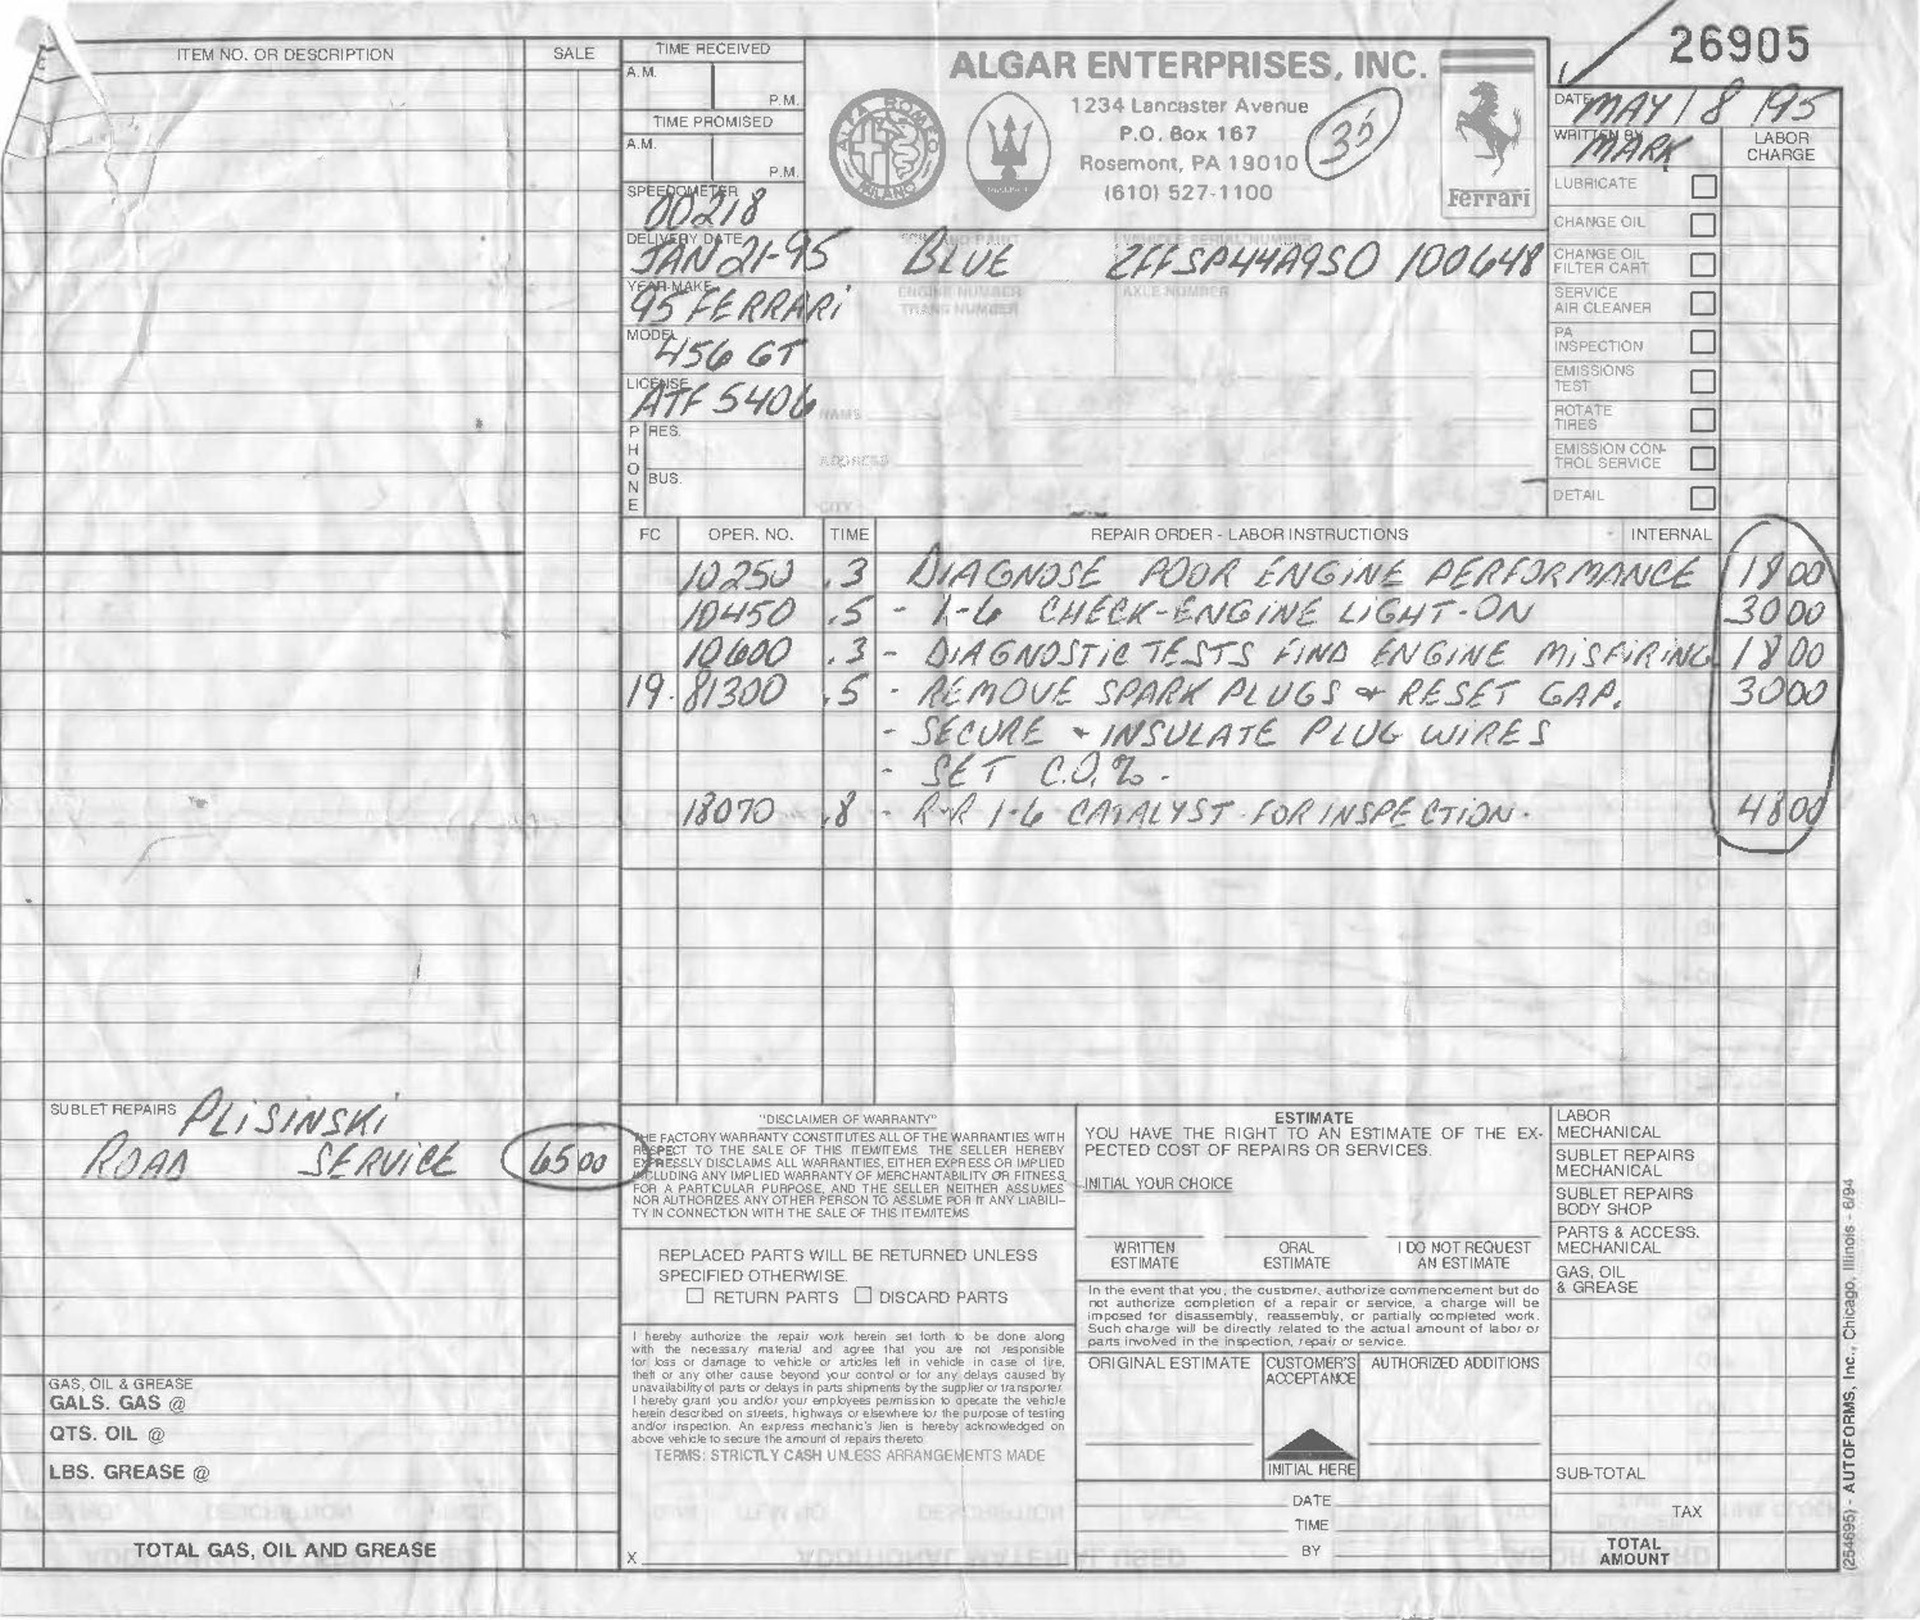 26905
ITEM NO. OR DESCRIPTION SALE
TIME RECEIVED
A.M.
P.M.
TIME PROMISED
A.M.
P.M.
SPEEDOMETER
00218
DELIVERY DATE
JAN 21-95
YEAR-MAKE
95 FERRARI
MODEL
456 GT
LICENSE
ATF 5406
PHONE
RES.
BUS.
ALGAR ENTERPRISES, INC.
1234 Lancaster Avenue
P.O. Box 167
Rosemont, PA 19010
(610) 527-1100
35
ALFA ROMEO
MILANO
Ferrari
BLUE
VEHICLE SERIAL NUMBER
ZFFSP44A9SO 100648
ENGINE NUMBER
TRANS NUMBER
AXLE NUMBER
NAME
ADDRESS
CITY
DATE MAY 18 195
WRITTEN BY MARK
LABOR CHARGE
LUBRICATE
CHANGE OIL
CHANGE OIL
FILTER CART
SERVICE
AIR CLEANER
PA
INSPECTION
EMISSIONS
TEST
ROTATE
TIRES
EMISSION CON-
TROL SERVICE
DETAIL
FC OPER. NO. TIME REPAIR ORDER - LABOR INSTRUCTIONS INTERNAL
10250 .3 DIAGNOSE POOR ENGINE PERFORMANCE 18 00
10450 .5 - 1-6 CHECK-ENGINE LIGHT-ON 30 00
10600 .3 - DIAGNOSTIC TESTS FIND ENGINE MISFIRING 18 00
19. 81300 .5 - REMOVE SPARK PLUGS + RESET GAP. 30 00
- SECURE + INSULATE PLUG WIRES
- SET C.O.% -
18070 .8 - R-R 1-6 CATALYST FOR INSPECTION. 48 00
SUBLET REPAIRS PLISINSKI
ROAD SERVICE 65 00
GAS, OIL & GREASE
GALS. GAS @
QTS. OIL @
LBS. GREASE @
TOTAL GAS, OIL AND GREASE
"DISCLAIMER OF WARRANTY"
THE FACTORY WARRANTY CONSTITUTES ALL OF THE WARRANTIES WITH
RESPECT TO THE SALE OF THIS ITEM/ITEMS. THE SELLER HEREBY
EXPRESSLY DISCLAIMS ALL WARRANTIES, EITHER EXPRESS OR IMPLIED
INCLUDING ANY IMPLIED WARRANTY OF MERCHANTABILITY OR FITNESS
FOR A PARTICULAR PURPOSE, AND THE SELLER NEITHER ASSUMES
NOR AUTHORIZES ANY OTHER PERSON TO ASSUME FOR IT ANY LIABILI-
TY IN CONNECTION WITH THE SALE OF THIS ITEM/ITEMS
REPLACED PARTS WILL BE RETURNED UNLESS
SPECIFIED OTHERWISE.
RETURN PARTS DISCARD PARTS
I hereby authorize the repair work herein set forth to be done along
with the necessary material and agree that you are not responsible
for loss or damage to vehicle or articles left in vehicle in case of fire,
theft or any other cause beyond your control or for any delays caused by
unavailability of parts or delays in parts shipments by the supplier or transporter
I hereby grant you and/or your employees permission to operate the vehicle
herein described on streets, highways or elsewhere for the purpose of testing
and/or inspection. An express mechanic's lien is hereby acknowledged on
above vehicle to secure the amount of repairs thereto
TERMS: STRICTLY CASH UNLESS ARRANGEMENTS MADE
X
ESTIMATE
YOU HAVE THE RIGHT TO AN ESTIMATE OF THE EX-
PECTED COST OF REPAIRS OR SERVICES.
INITIAL YOUR CHOICE
WRITTEN ESTIMATE
ORAL ESTIMATE
I DO NOT REQUEST AN ESTIMATE
In the event that you, the customer, authorize commencement but do
not authorize completion of a repair or service, a charge will be
imposed for disassembly, reassembly, or partially completed work.
Such charge will be directly related to the actual amount of labor or
parts involved in the inspection, repair or service.
ORIGINAL ESTIMATE
CUSTOMER'S ACCEPTANCE
AUTHORIZED ADDITIONS
INITIAL HERE
DATE
TIME
BY
LABOR
MECHANICAL
SUBLET REPAIRS
MECHANICAL
SUBLET REPAIRS
BODY SHOP
PARTS & ACCESS.
MECHANICAL
GAS, OIL
& GREASE
SUB-TOTAL
TAX
TOTAL
AMOUNT
(254695) - AUTOFORMS, Inc., Chicago, Illinois - 6/94